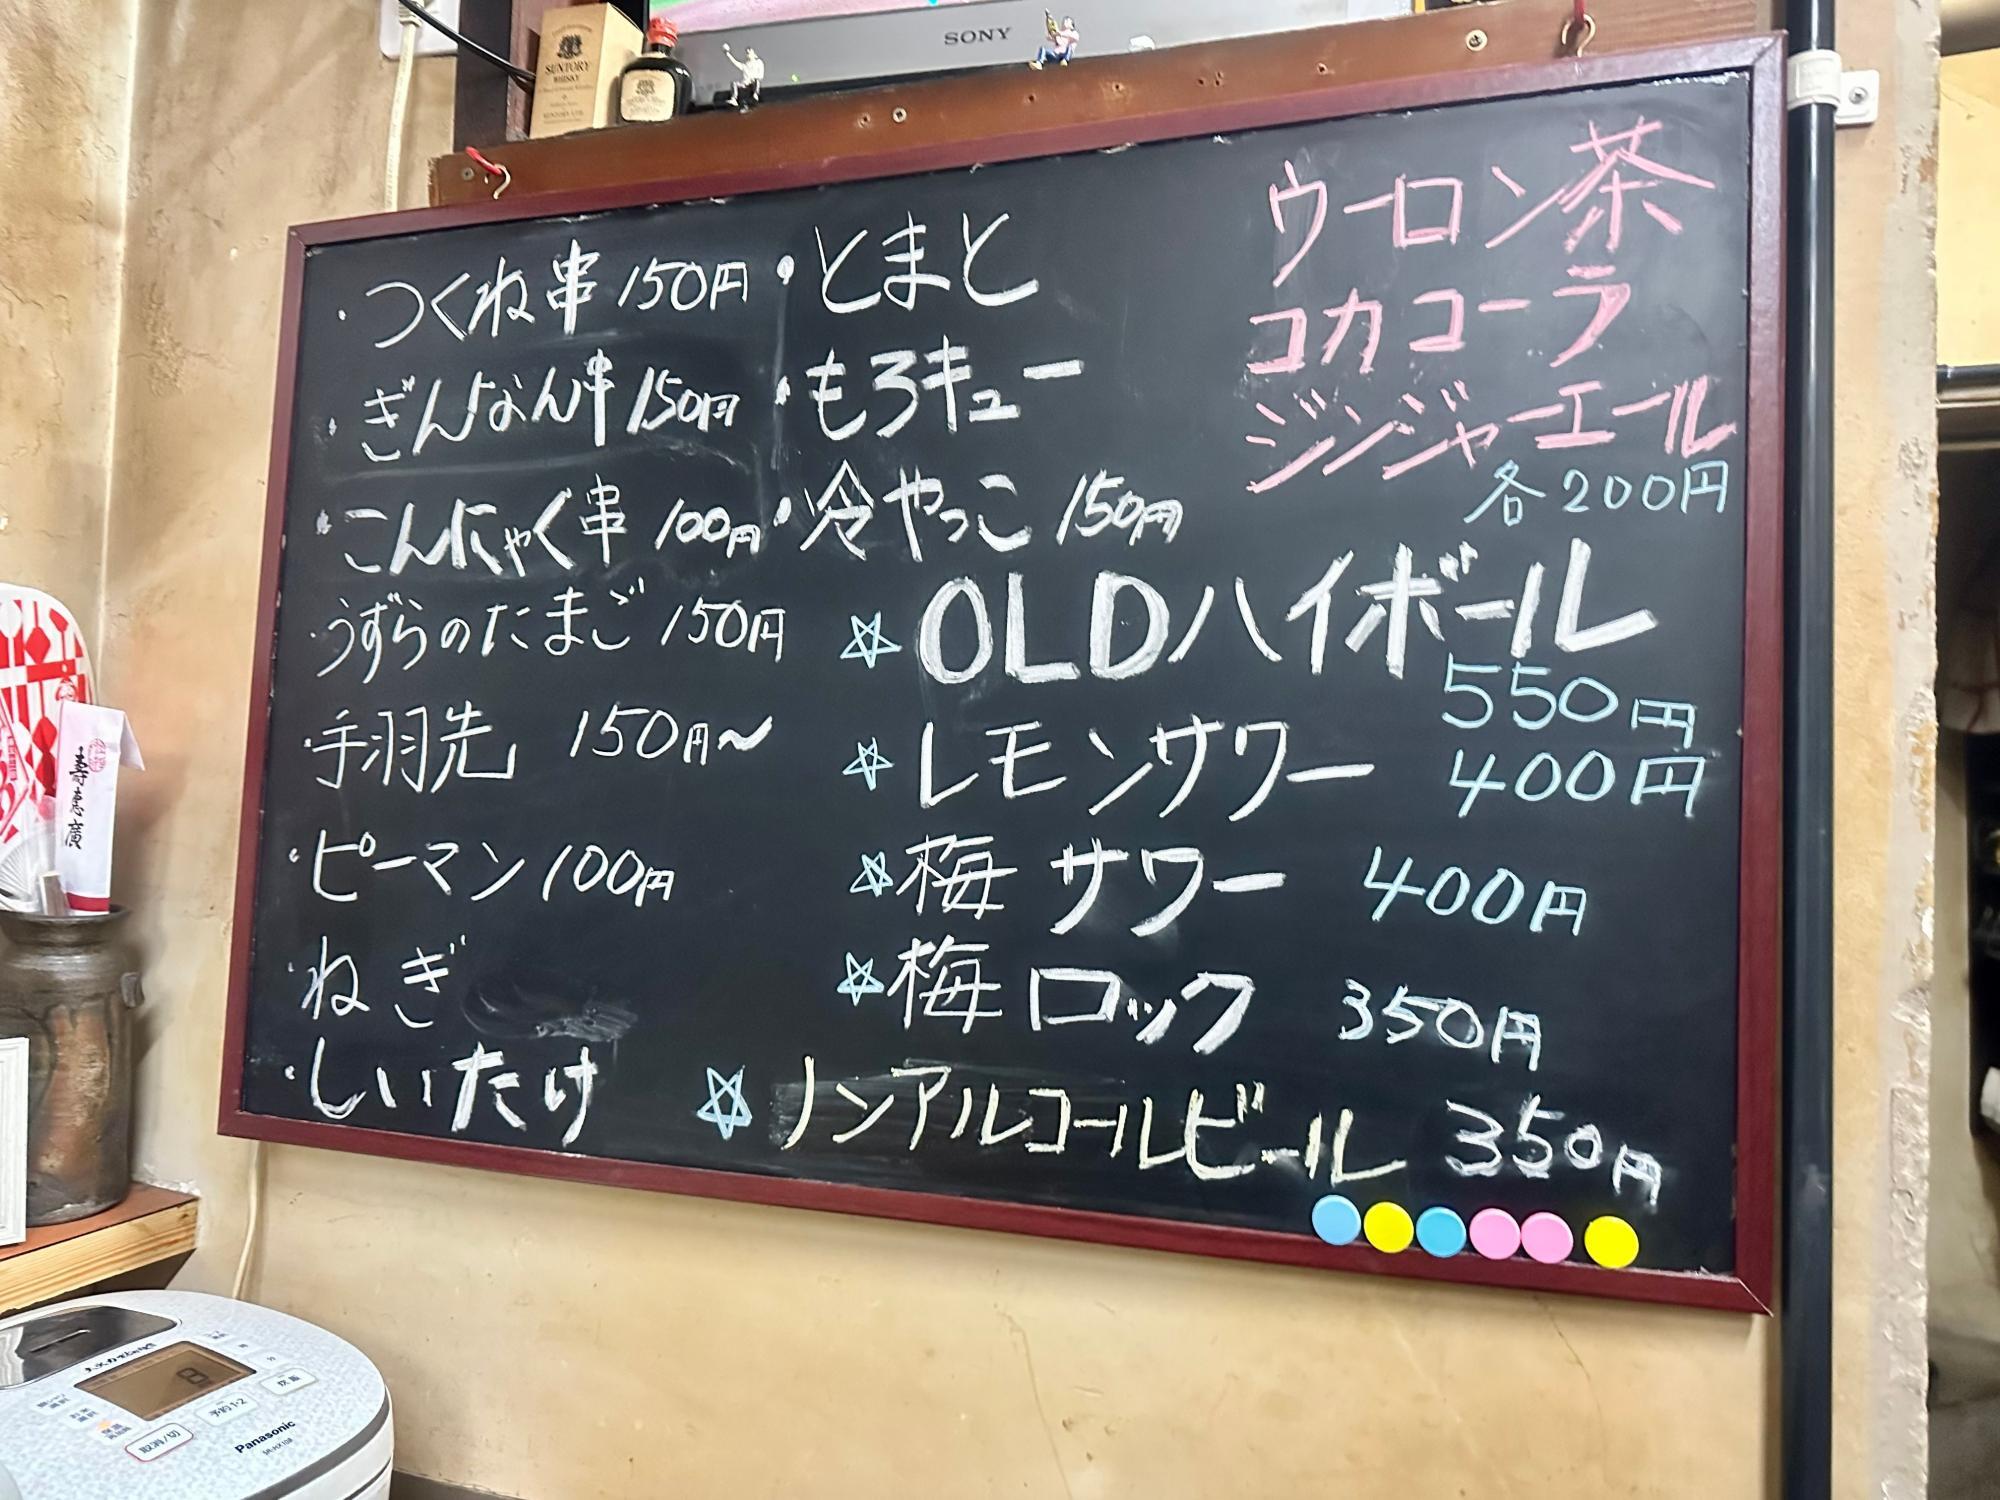 SONY
SUNTORY
WHISKY
・つくね串 150円
・ぎんなん串 150円
・こんにゃく串 100円
・うずらのたまご 150円
・手羽先 150円〜
・ピーマン 100円
・ねぎ
・しいたけ
・とまと
・もろキュー
・冷やっこ 150円
ウーロン茶
コカコーラ
ジンジャーエール
各200円
☆OLDハイボール
550円
☆レモンサワー 400円
☆梅サワー 400円
☆梅ロック 350円
☆ノンアルコールビール 350円
寿恵廣
8
予約1・2
炊飯
取消/切
Panasonic